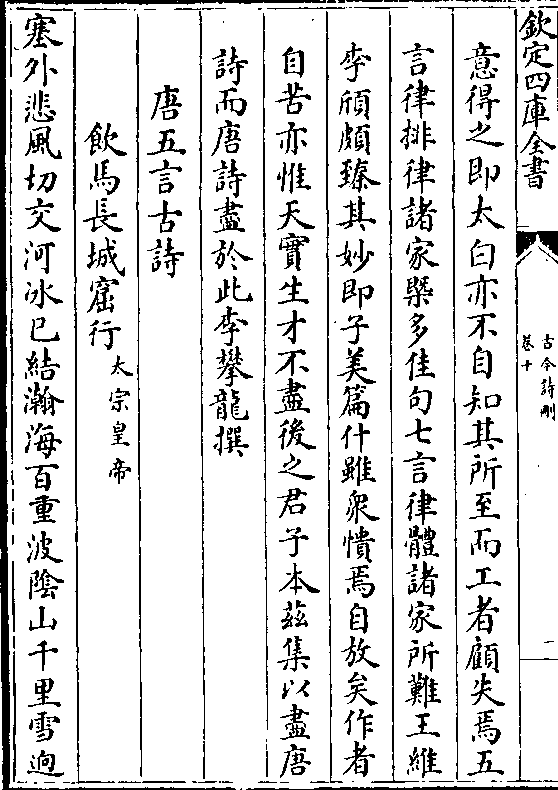 欽定四庫全書
古今詩刪
卷十
一
意得之即太白亦不自知其所至而工者顧失焉五
言律排律諸家槩多佳句七言律體諸家所難王維
李頎頗臻其妙即子美篇什雖衆憒焉自放矣作者
自苦亦惟天實生才不盡後之君子本兹集以盡唐
詩而唐詩盡於此李攀龍撰
唐五言古詩
飲馬長城窟行 太宗皇帝
塞外悲風切交河冰已結瀚海百重波陰山千里雪迥